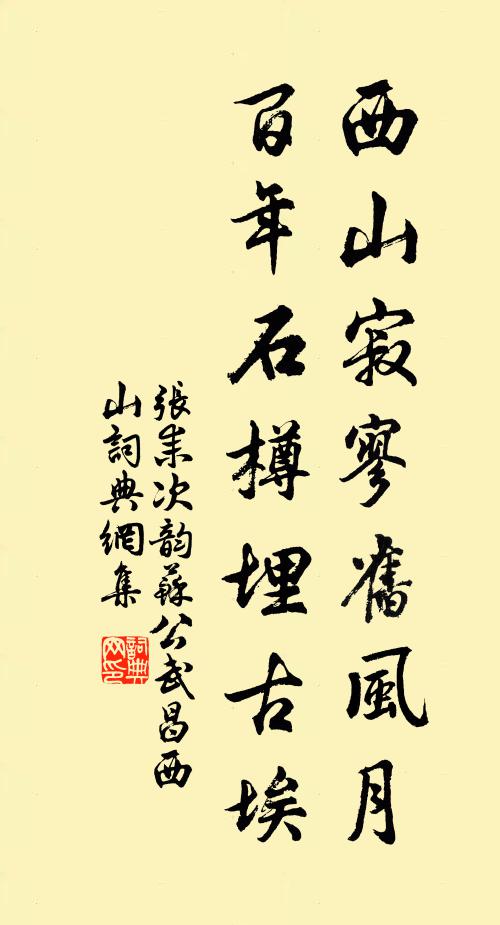 西山寂寥舊風月
百年石樽埋古埃
張耒次韵蘇公武昌西
山詞典網集
詞典
网印